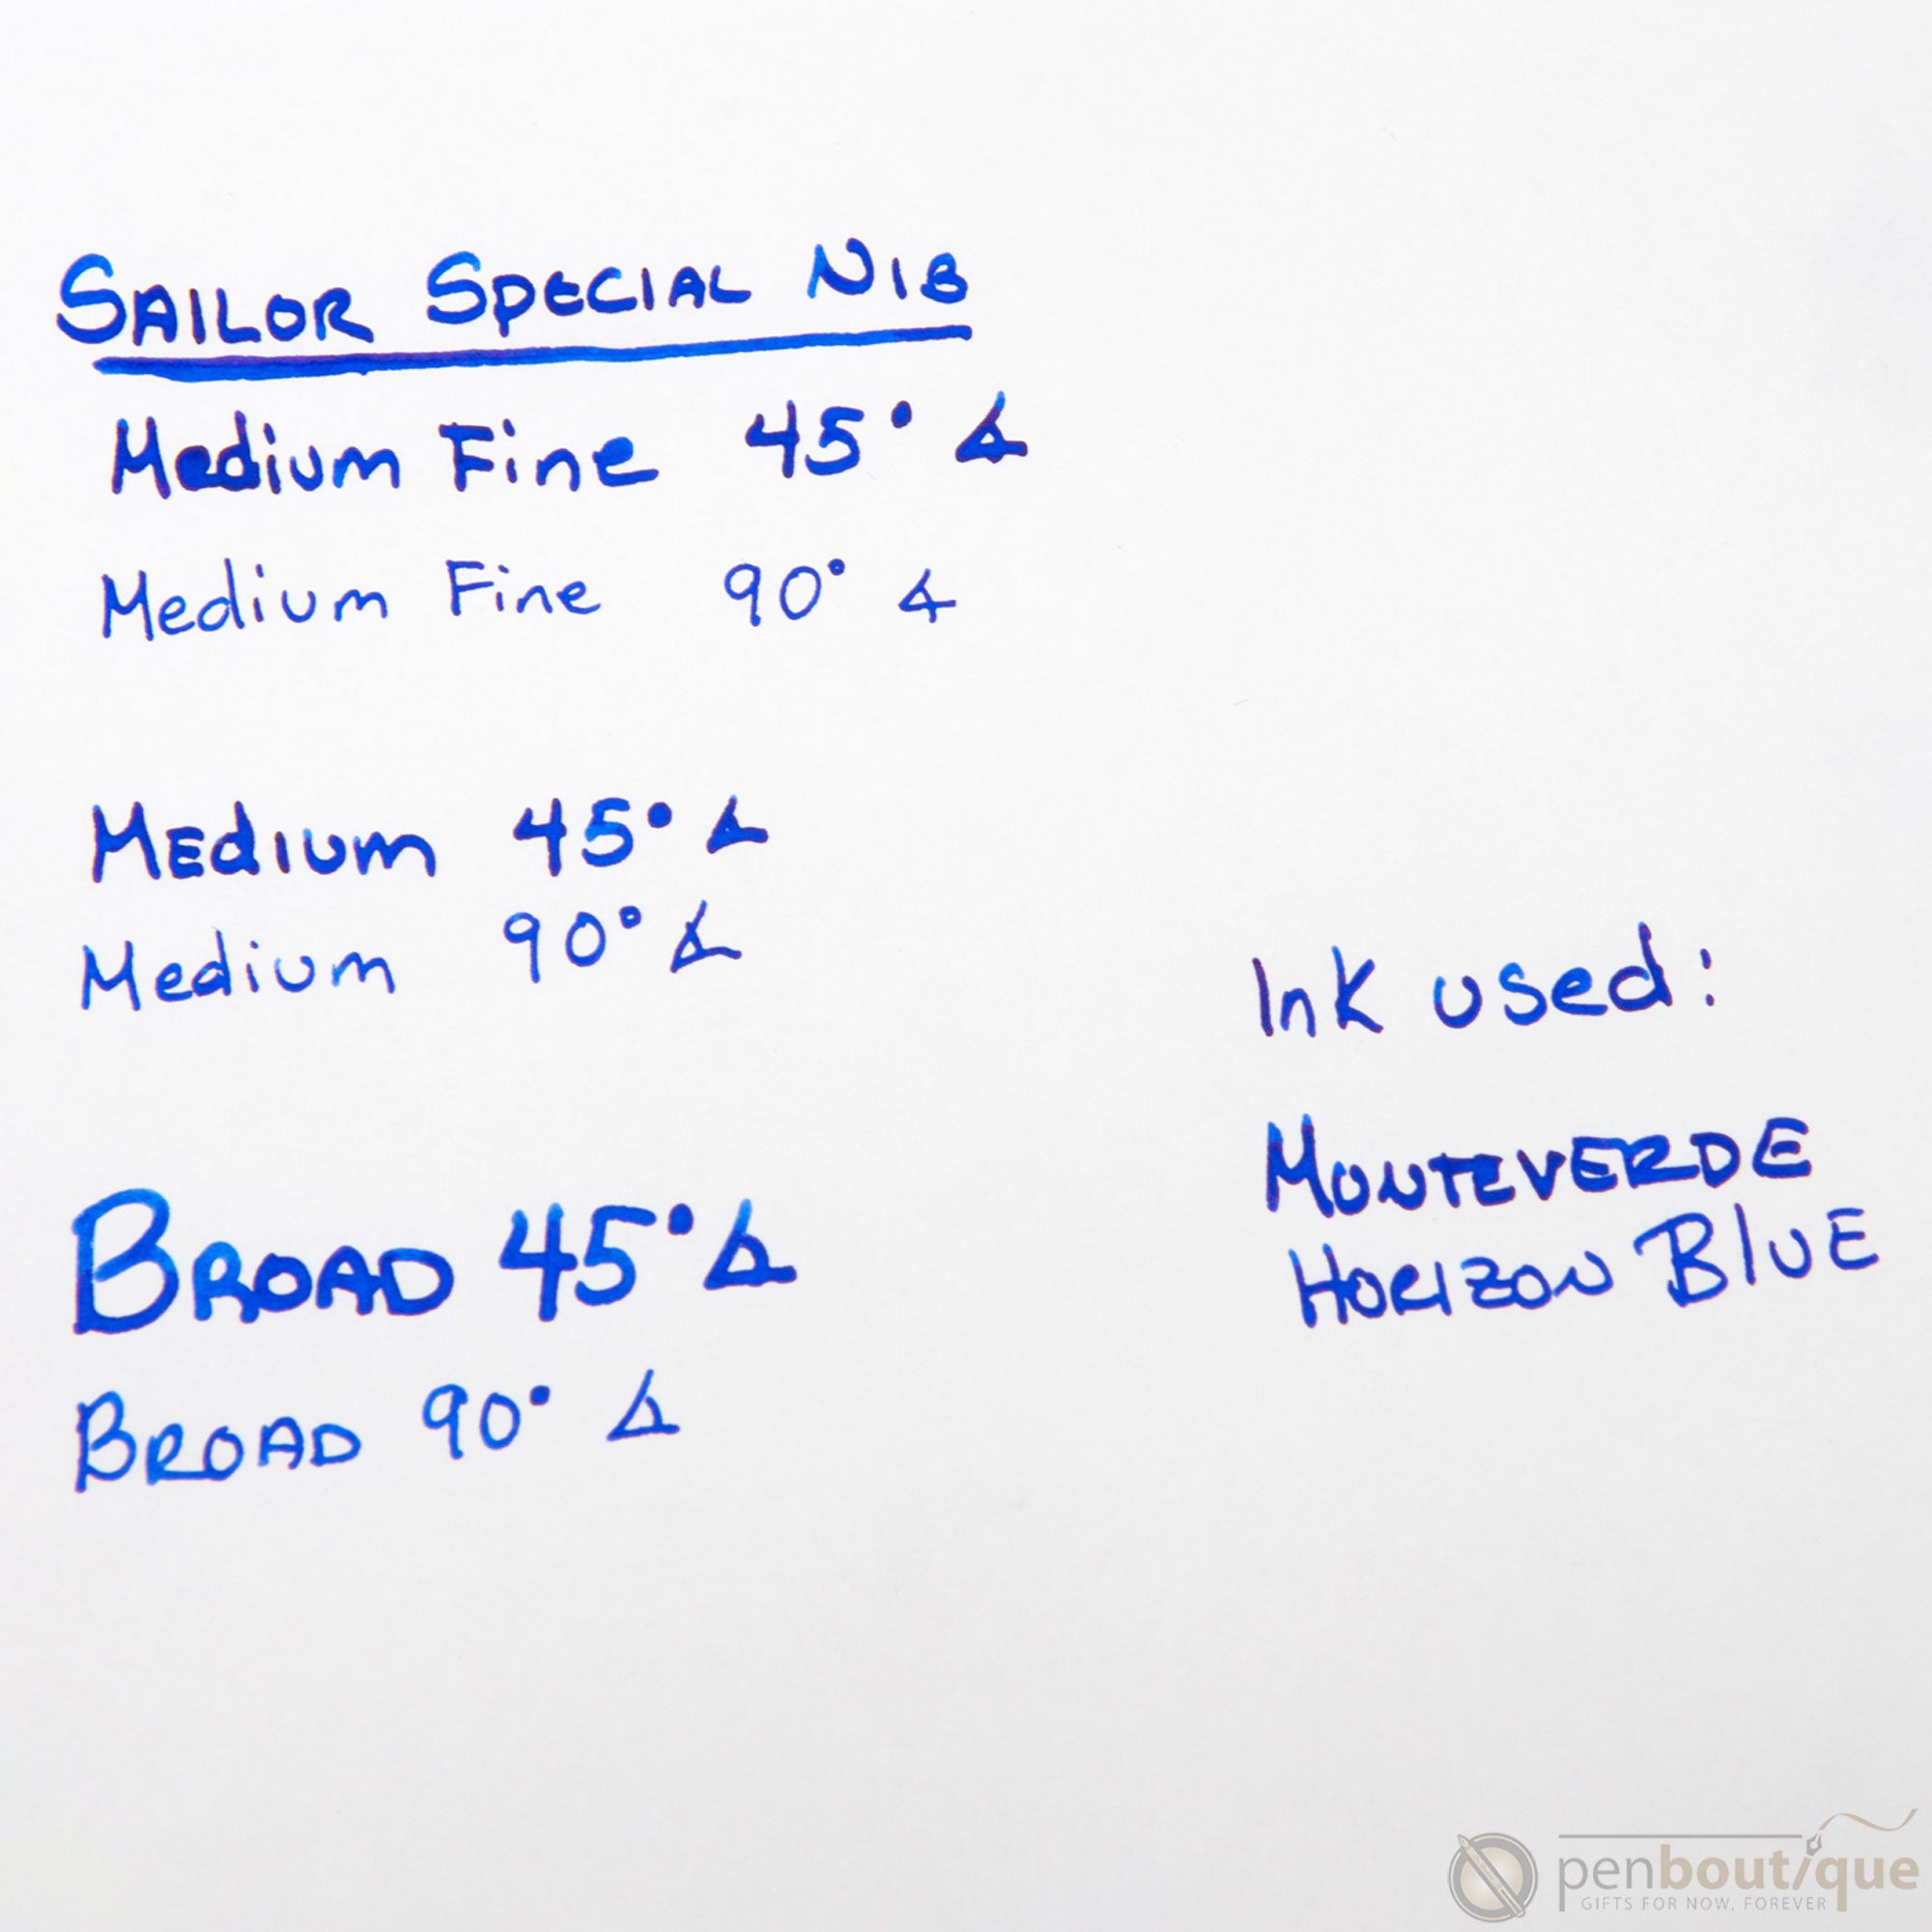 SAILOR SPECIAL NIB
Medium Fine 45° ∡
Medium Fine 90° ∡
MEdIUm 45° ∡
Medium 90° ∡
BROAD 45° ∡
BROAD 90° ∡
Ink used:
MONTEVERDE
HORIZON BlUE
penboutique
GIFTS FOR NOW, FOREVER